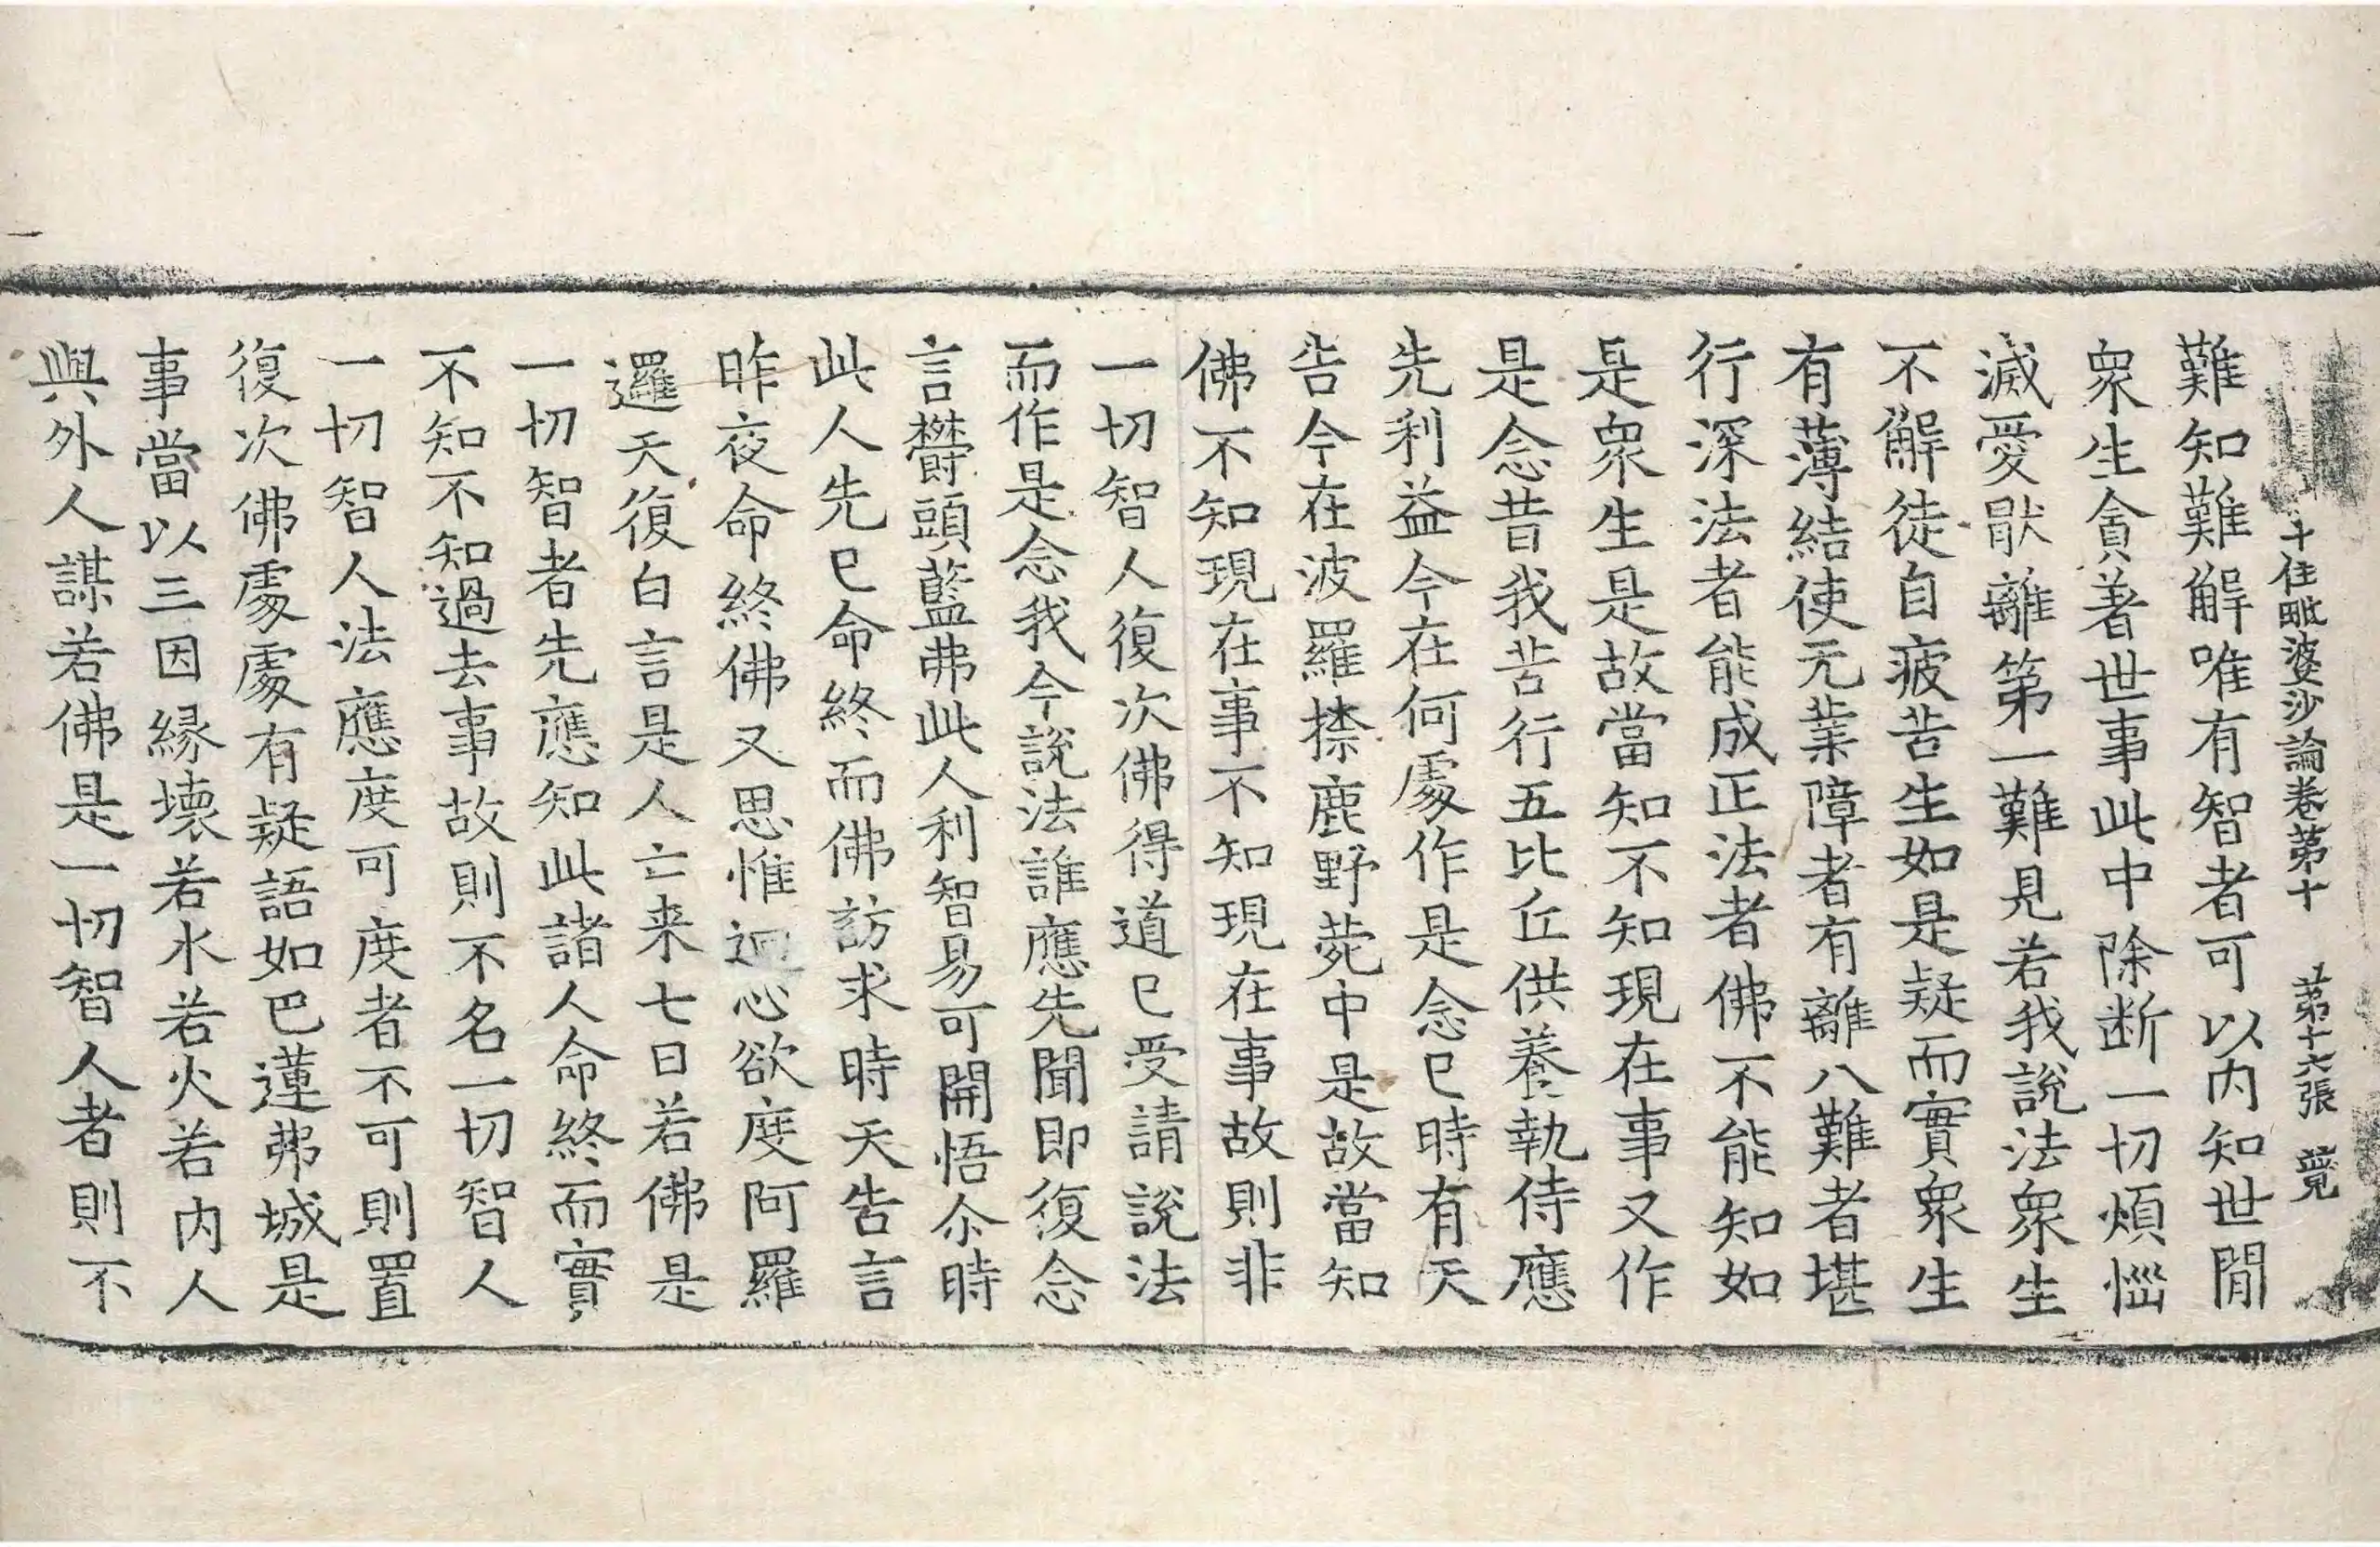 十住毗婆沙論卷第十　第十六張　覓
難知難解唯有智者可以內知世閒
衆生貪著世事此中除断一切煩惱
滅愛猒離第一難見若我說法衆生
不解徒自疲苦生如是疑而實衆生
有薄結使无業障者有離八難者堪
行深法者能成正法者佛不能知如
是衆生是故當知不知現在事又作
是念昔我苦行五比丘供養執侍應
先利益今在何處作是念已時有天
告今在波羅㮈鹿野菀中是故當知
佛不知現在事不知現在事故則非
一切智人復次佛得道已受請說法
而作是念我今說法誰應先聞即復念
言欝頭藍弗此人利智易可開悟尒時
此人先已命終而佛訪求時天告言
昨夜命終佛又思惟迴心欲度阿羅
邏天復白言是人亡来七日若佛是
一切智者先應知此諸人命終而實
不知不知過去事故則不名一切智人
一切智人法應度可度者不可則置
復次佛處處有疑語如巴蓮弗城是
事當以三因緣壞若水若火若內人
與外人謀若佛是一切智人者則不